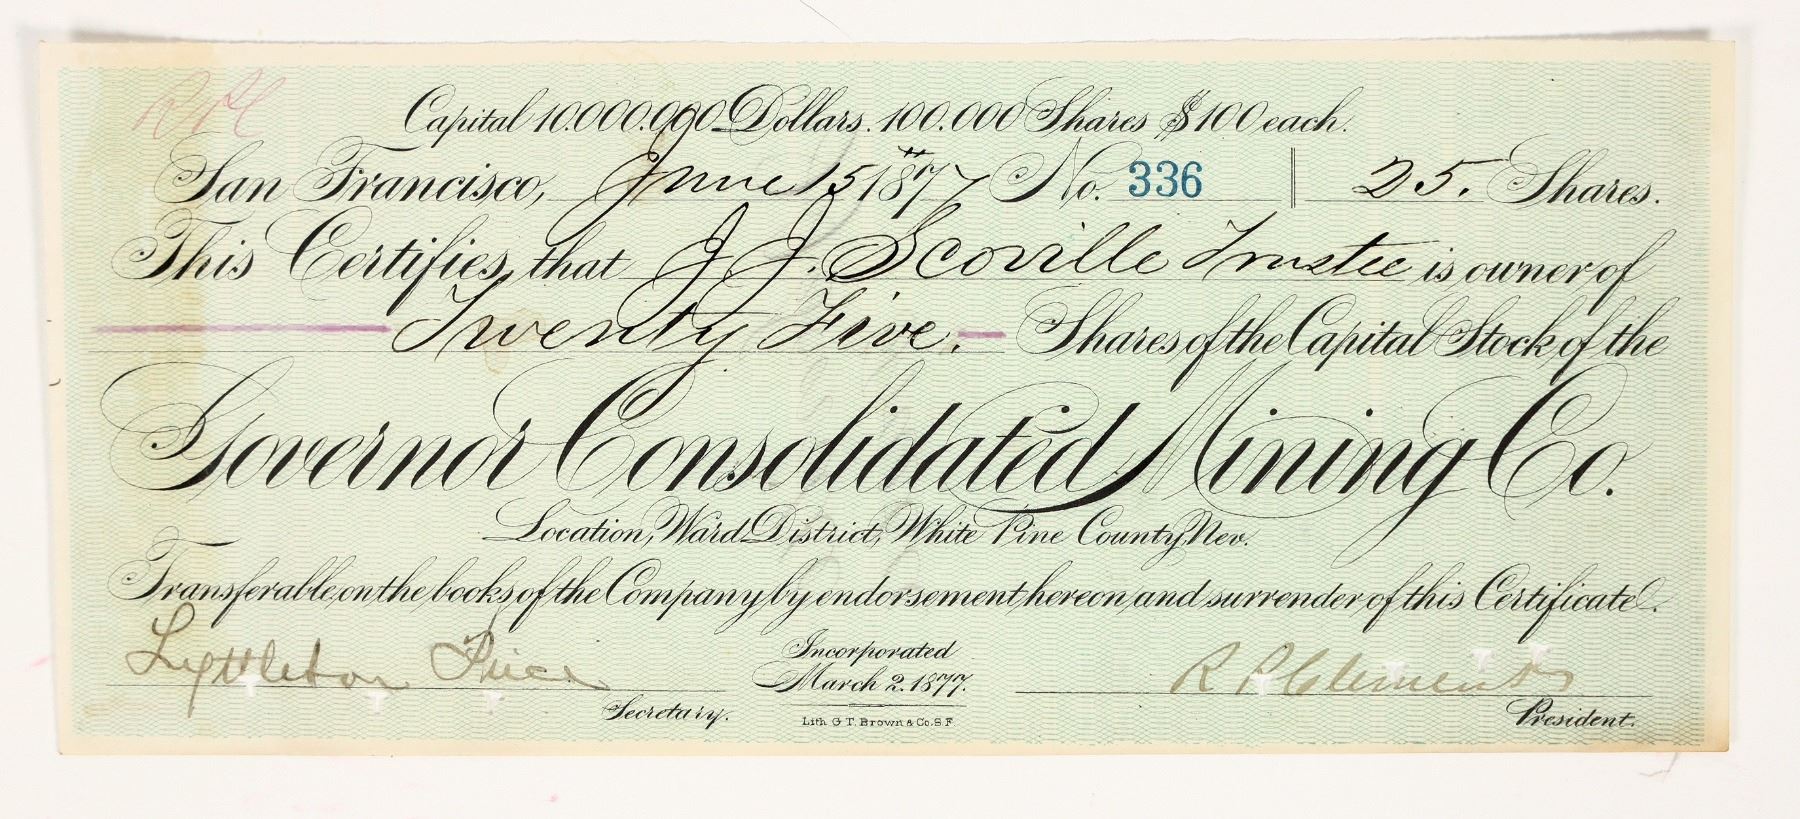 Capital 10.000.000 Dollars. 100.000 Shares $100 each.
San Francisco, June 15th 1877 No. 336 25. Shares.
This Certifies, that J. J. Scoville Trustee is owner of
Twenty Five. Shares of the Capital Stock of the
Governor Consolidated Mining Co.
Location, Ward District, White Pine County, Nev.
Transferable on the books of the Company by endorsement hereon and surrender of this Certificate.
Lyttleton Price Secretary.
Incorporated
March 2. 1877.
Lith. G.T. Brown & Co. S.F.
R R Clements President.